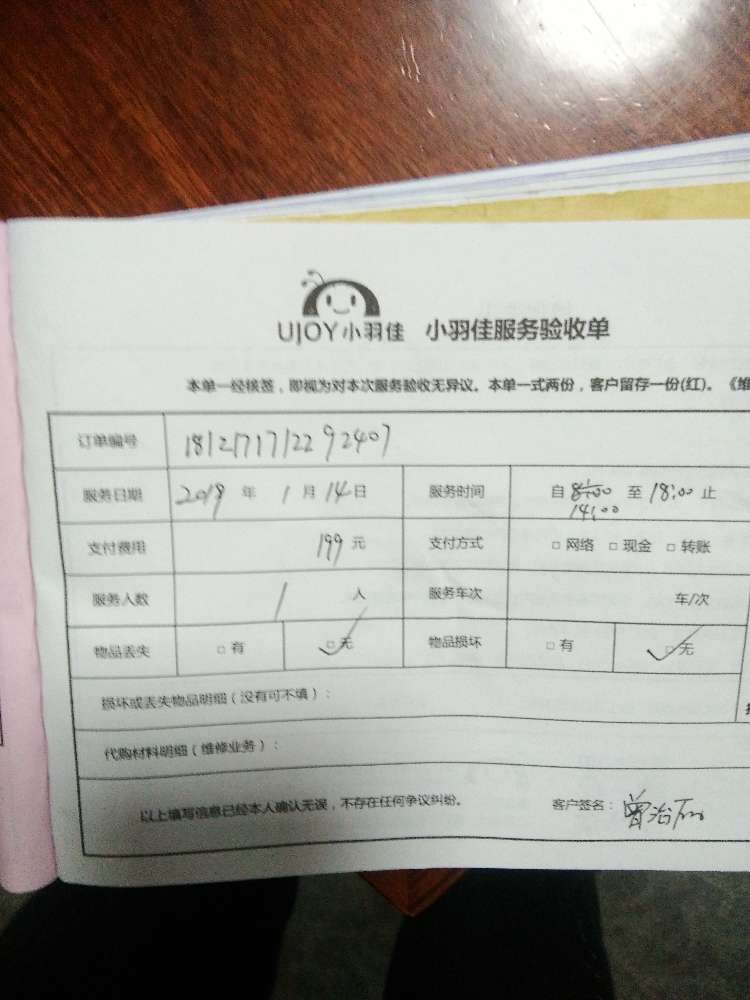 UJOY小羽佳 小羽佳服务验收单
本单一经核签，即视为对本次服务验收无异议。本单一式两份，客户留存一份(红)。《维
订单编号 1812171712292407
服务日期 2019 年 1 月 14 日 服务时间 自 8:00 至 18:00 止
14:00
支付费用 199 元 支付方式 □ 网络 □ 现金 □ 转账
服务人数 1 人 服务车次 车/次
物品丢失 □ 有 □ 无 物品损坏 □ 有 □ 无
损坏或丢失物品明细（没有可不填）：
代购材料明细（维修业务）：
以上填写信息已经本人确认无误，不存在任何争议纠纷。 客户签名：